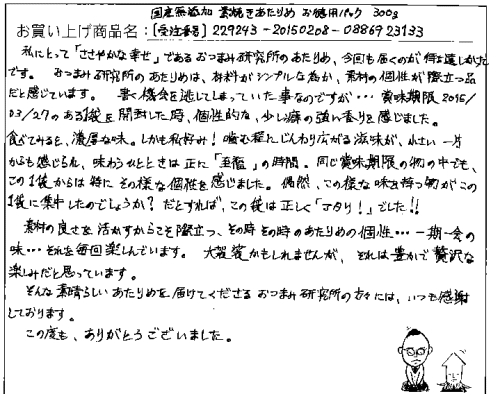 国産無添加 素焼きあたりめ お徳用パック 300g
お買い上げ商品名:[受注番号] 229243-20150208-0886923133
私にとって「ささやかな幸せ」であるおつまみ研究所のあたりめ、今回も届くのが待ち遠しかった
です。 おつまみ研究所のあたりめは、材料がシンプルな為か、素材の個性が際立つ品
だと感じています。 書く機会を逃してしまっていた事なのですが… 賞味期限2015/
03/27のある1袋を開封した時、個性的な、少し癖の強い香りを感じました。
食べてみると、濃厚な味。しかも私好み! 噛む程にじんわり広がる滋味が、小さい一片
からも感じられ、味わうひとときは正に「至福」の時間。同じ賞味期限の物の中でも、
この1袋からは特にその様な個性を感じました。偶然、この様な味を持つ物がこの
1袋に集中したのでしょうか?だとすれば、この袋は正しく「アタリ!」でした!!
素材の良さを活かすからこそ際立つ、その時その時のあたりめの個性… 一期一会の
味… それを毎回楽しんでいます。 大袈裟かもしれませんが、それは豊かで贅沢な
楽しみだと思っています。
そんな素晴らしいあたりめを届けてくださるおつまみ研究所の方々には、いつも感謝
しております。
この度も、ありがとうございました。